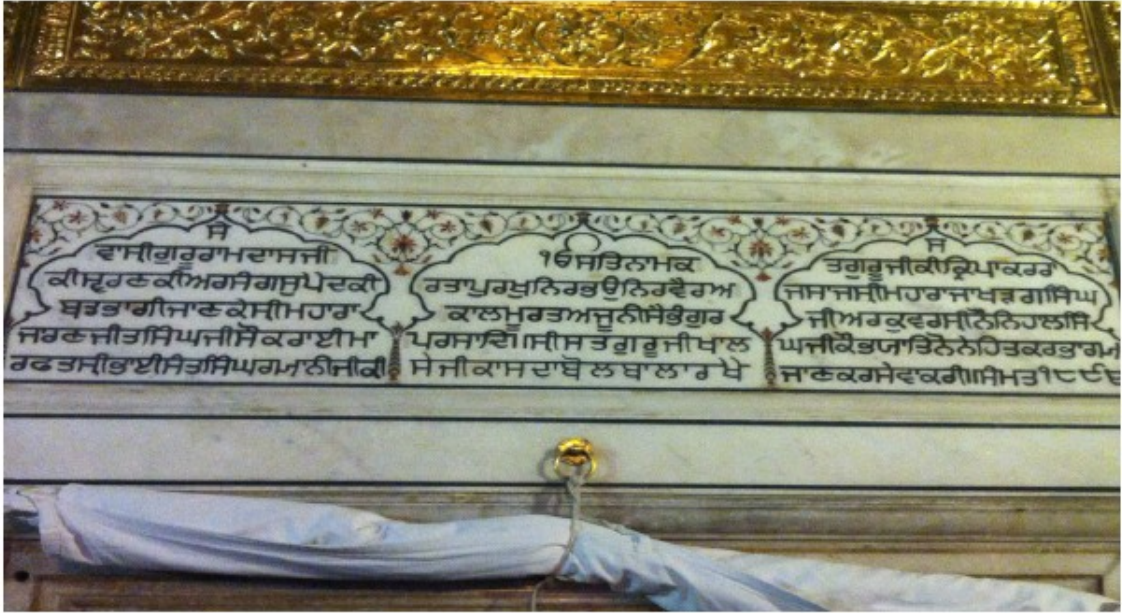 ਸੇ
ਵਾਸੀਗੁਰੂਰਾਮਦਾਸਜੀ
ਕੀਸ੍ਵਰਣਕੀਅਰਸੰਗਸੁਪੇਦਕੀ
ਬਡਭਾਗੀਜਾਣਕੇਸੀਮਹਾਰਾ
ਜਾਰਣਜੀਤਸਿੰਘਜੀਸੌਕਰਾਈਮਾ
ਰਫਤਸੀਭਾਈਸੰਤਸਿੰਘਗਿਆਨੀਜੀਕੀ
੧ਓਸਤਿਨਾਮਕ
ਰਤਾਪੁਰਖੁਨਿਰਭਉਨਿਰਵੈਰਅ
ਕਾਲਮੂਰਤਅਜੂਨੀਸੈਭੰਗੁਰ
ਪਰਸਾਦਿ॥ਸੀਸਤਗੁਰੂਜੀਖਾਲ
ਸੇਜੀਕਾਸਦਾਬੋਲਬਾਲਾਰਖੇ
ਸ
ਤਗੁਰੂਜੀਕੀਕ੍ਰਿਪਾਕਰਰਾ
ਜਸਾਜਸੀਮਹਾਰਾਜਾਖੜਗਸਿੰਘ
ਜੀਅਰਕੁਵਰਸੀਨੌਨਿਹਾਲਸਿੰ
ਘਜੀਕੈਭਯਾਤਿਨੋਨੇਹਿਤਕਰਭਾਗਮ
ਜਾਣਕਰਸੇਵਾਕਰੀ॥ਸੰਮਤ